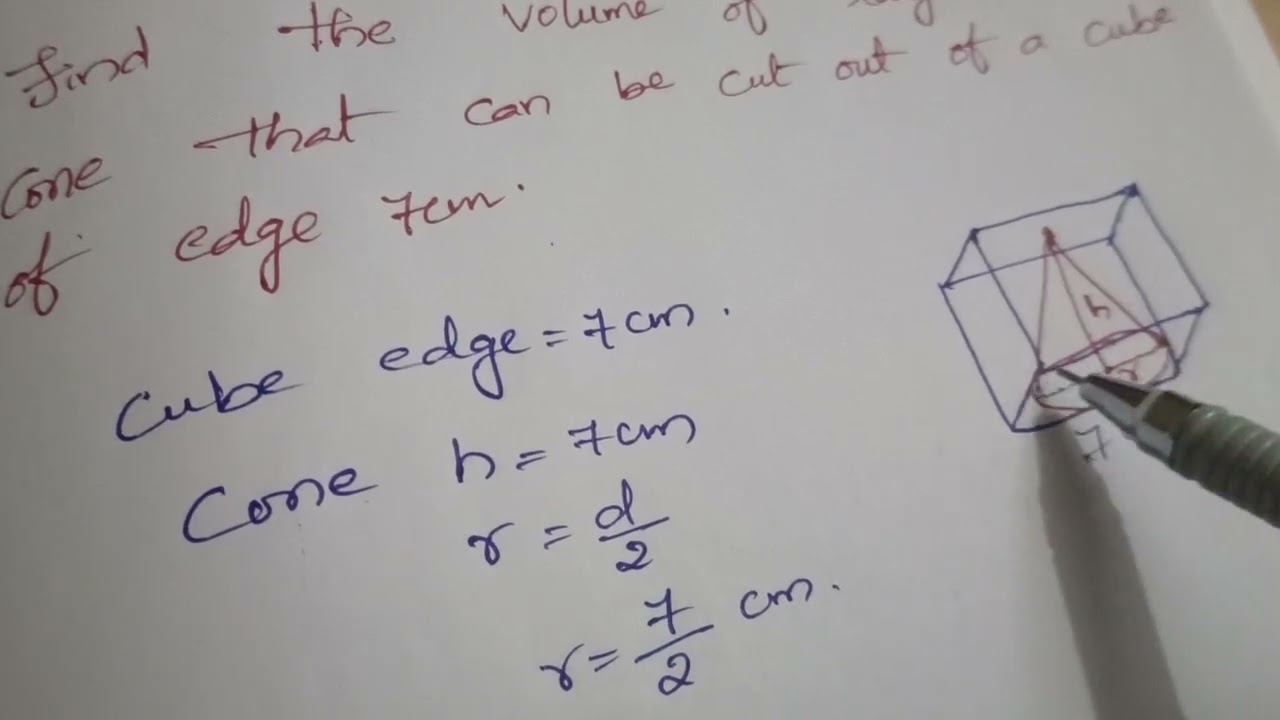 find the volume of
cone that can be cut out of a cube
of edge 7cm.
Cube edge = 7cm.
Cone h = 7cm
r = d/2
r = 7/2 cm.
h
r
7